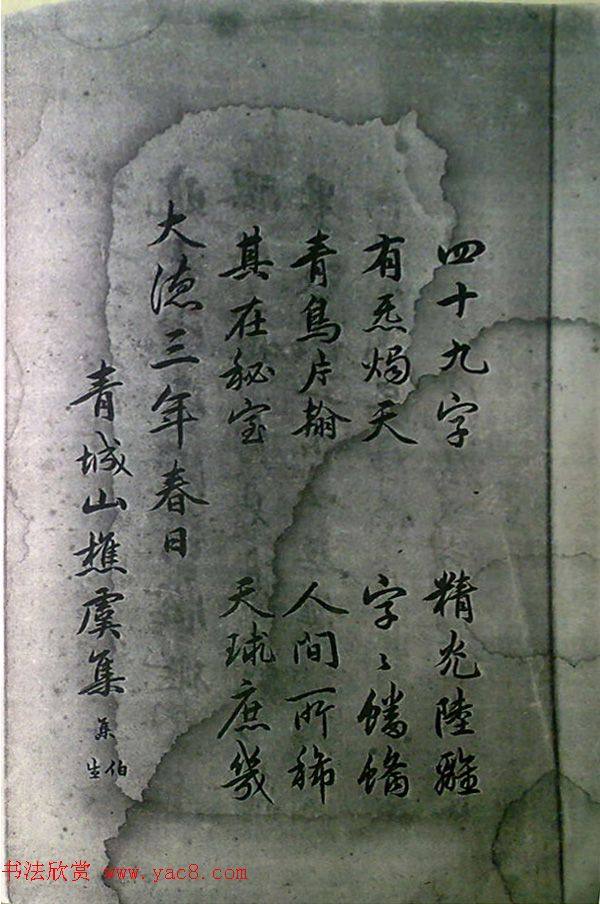 四十九字 精光陸離
有炁燭天 字〻蟠螭
青鳥片翰 人間所稀
其在秘宝 天球庶幾
大德三年春日
青城山樵虞集
集
伯生
书法欣赏 www.yac8.com